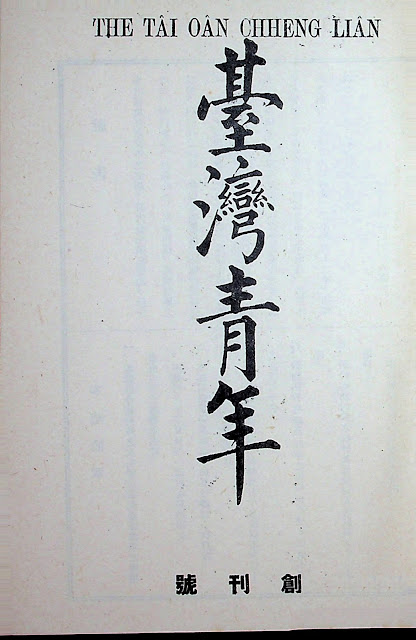 THE TÂI OÂN CHHENG LIÂN
臺灣青年
創刊號